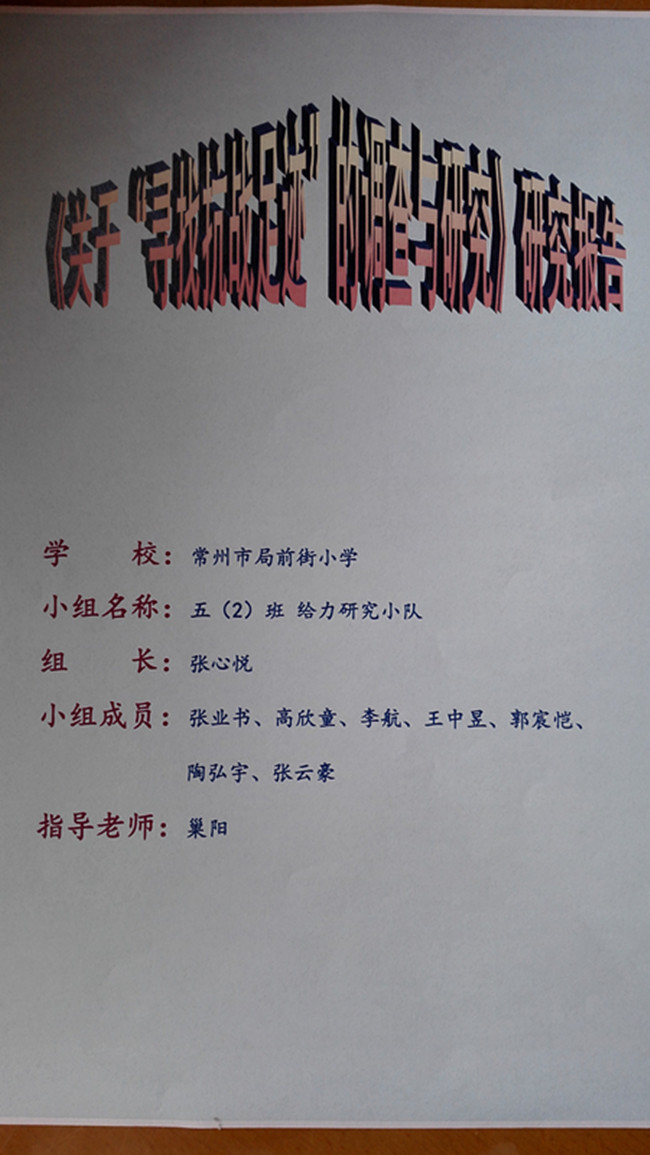 《关于“寻找抗战足迹”的调查与研究》研究报告
学　　校：常州市局前街小学
小组名称：五（2）班 给力研究小队
组　　长：张心悦
小组成员：张业书、高欣童、李航、王中昱、郭宸恺、
陶弘宇、张云豪
指导老师：巢阳